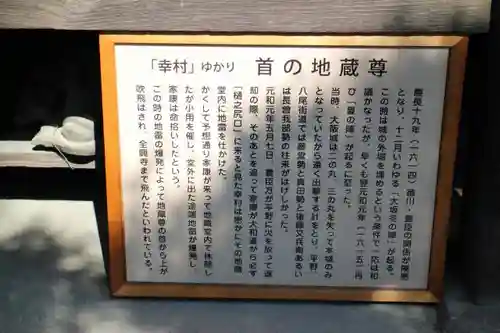 「幸村」ゆかり 首の地蔵尊
慶長十九年(一六一四)徳川・豊臣の関係が険悪
となり、十二月いわゆる「大坂冬の陣」が起る。
この時は城の外堀を埋めるという条件で一応は和
議がなったが、早くも翌元和元年(一六一五)再
び「夏の陣」が起るに至った。
当時、大阪城は二の丸、三の丸を失って本城のみ
となっていたから遠く出撃する計をとり、平野、
八尾街道では藤堂勢と真田勢と後藤又兵衛あるい
は長曽我部勢の往来がはげしかった。
元和元年五月七日、豊臣方が平野に火を放って退
却の際、そのあとを追って家康が大和道から必ず
「樋之尻口」に来ると見た幸村は密かにその地蔵
堂内に地雷を仕かけた。
かくして予想通り家康が来って地蔵堂内で休憩し
たが小用を催し、堂外に出た途端地雷が爆発し
家康は命拾いしたという。
この時の地雷の爆発によって地蔵尊の首から上が
吹飛ばされ、全興寺まで飛んだといわれている。